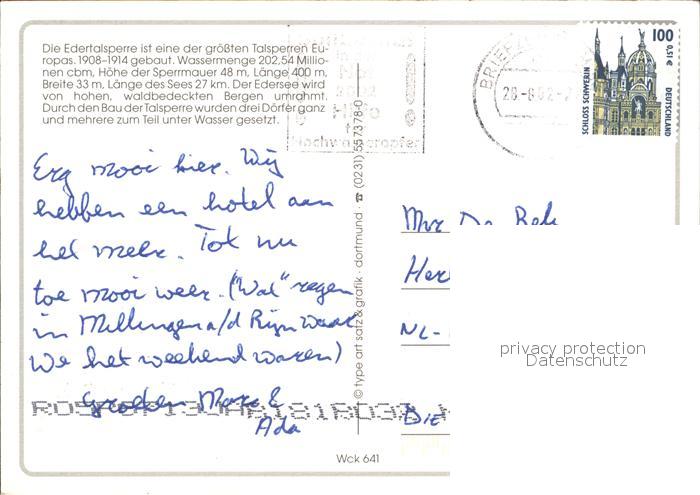 Die Edertalsperre ist eine der größten Talsperren Eu-
ropas. 1908-1914 gebaut. Wassermenge 202,54 Millio-
nen cbm, Höhe der Sperrmauer 48 m, Länge 400 m,
Breite 33 m, Länge des Sees 27 km. Der Edersee wird
von hohen, waldbedeckten Bergen umrahmt.
Durch den Bau der Talsperre wurden drei Dörfer ganz
und mehrere zum Teil unter Wasser gesetzt.
Hochwasseropfer
BRIEFZ
28.-8.02.-
100
0,51 €
SCHLOSS SCHWERIN
DEUTSCHLAND
Erg mooi hier. Wij
hebben een hotel aan
het meer. Tot nu
toe mooi weer. ("Wat" regen
in Millingen a/d Rijn waar
we het weekend waren)
Groeten &
Ada
© type art satz & grafik · dortmund · ☎ (0231) 557378-0
NL-
privacy protection
Datenschutz
Wck 641